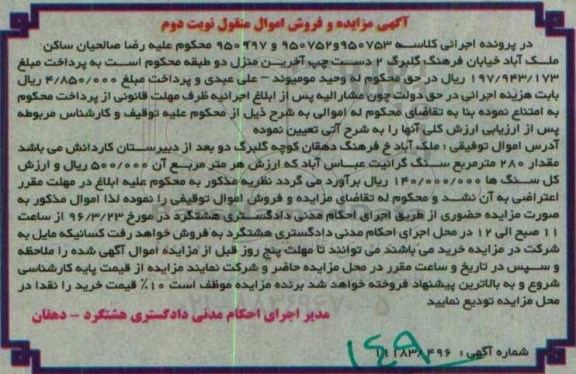 آگهی مزایده و فروش اموال منقول نوبت دوم
در پرونده اجرائی کلاسه ۹۵۰۷۵۳و۹۵۰۷۵۲ و ۹۵۰۶۹۷ محکوم علیه رضا صالحیان ساکن
ملک آباد خیابان فرهنگ گلبرگ ۲ دست چپ آخرین منزل دو طبقه محکوم است به پرداخت مبلغ
۱۹۷/۹۴۳/۱۷۳ ریال در حق محکوم له وحید مومیوند - علی عبدی و پرداخت مبلغ ۴/۸۵۰/۰۰۰ ریال
بابت هزینه اجرائی در حق دولت چون مشارالیه پس از ابلاغ اجرائیه ظرف مهلت قانونی از پرداخت محکوم
به امتناع نموده بنا به تقاضای محکوم له اموالی به شرح ذیل از محکوم علیه توقیف و کارشناس مربوطه
پس از ارزیابی ارزش کلی آنها را به شرح آتی تعیین نموده
آدرس اموال توقیفی : ملک آباد خ فرهنگ دهقان کوچه گلبرگ دو بعد از دبیرستان کاردانش می باشد
مقدار ۲۸۰ مترمربع سنگ گرانیت عباس آباد که ارزش هر متر مربع آن ۵۰۰/۰۰۰ ریال و ارزش
کل سنگ ها ۱۴۰/۰۰۰/۰۰۰ ریال برآورد می گردد نظریه مذکور به محکوم علیه ابلاغ در مهلت مقرر
اعتراضی به آن نشد و محکوم له تقاضای مزایده و فروش اموال توقیفی را نموده لذا اموال مذکور به
صورت مزایده حضوری از طریق اجرای احکام مدنی دادگستری هشتگرد در مورخ ۹۶/۳/۲۳ از ساعت
۱۱ صبح الی ۱۲ در محل اجرای احکام مدنی دادگستری هشتگرد به فروش خواهد رفت کسانیکه مایل به
شرکت در مزایده خرید می باشند می توانند تا مهلت پنج روز قبل از مزایده اموال آگهی شده را ملاحظه
و سپس در تاریخ و ساعت مقرر در محل مزایده حاضر و شرکت نمایند مزایده از قیمت پایه کارشناسی
شروع و به بالاترین پیشنهاد فروخته خواهد شد برنده مزایده موظف است ۱۰٪ قیمت خرید را نقدا در
محل مزایده تودیع نمایید
مدیر اجرای احکام مدنی دادگستری هشتگرد - دهقان
شماره آگهی :